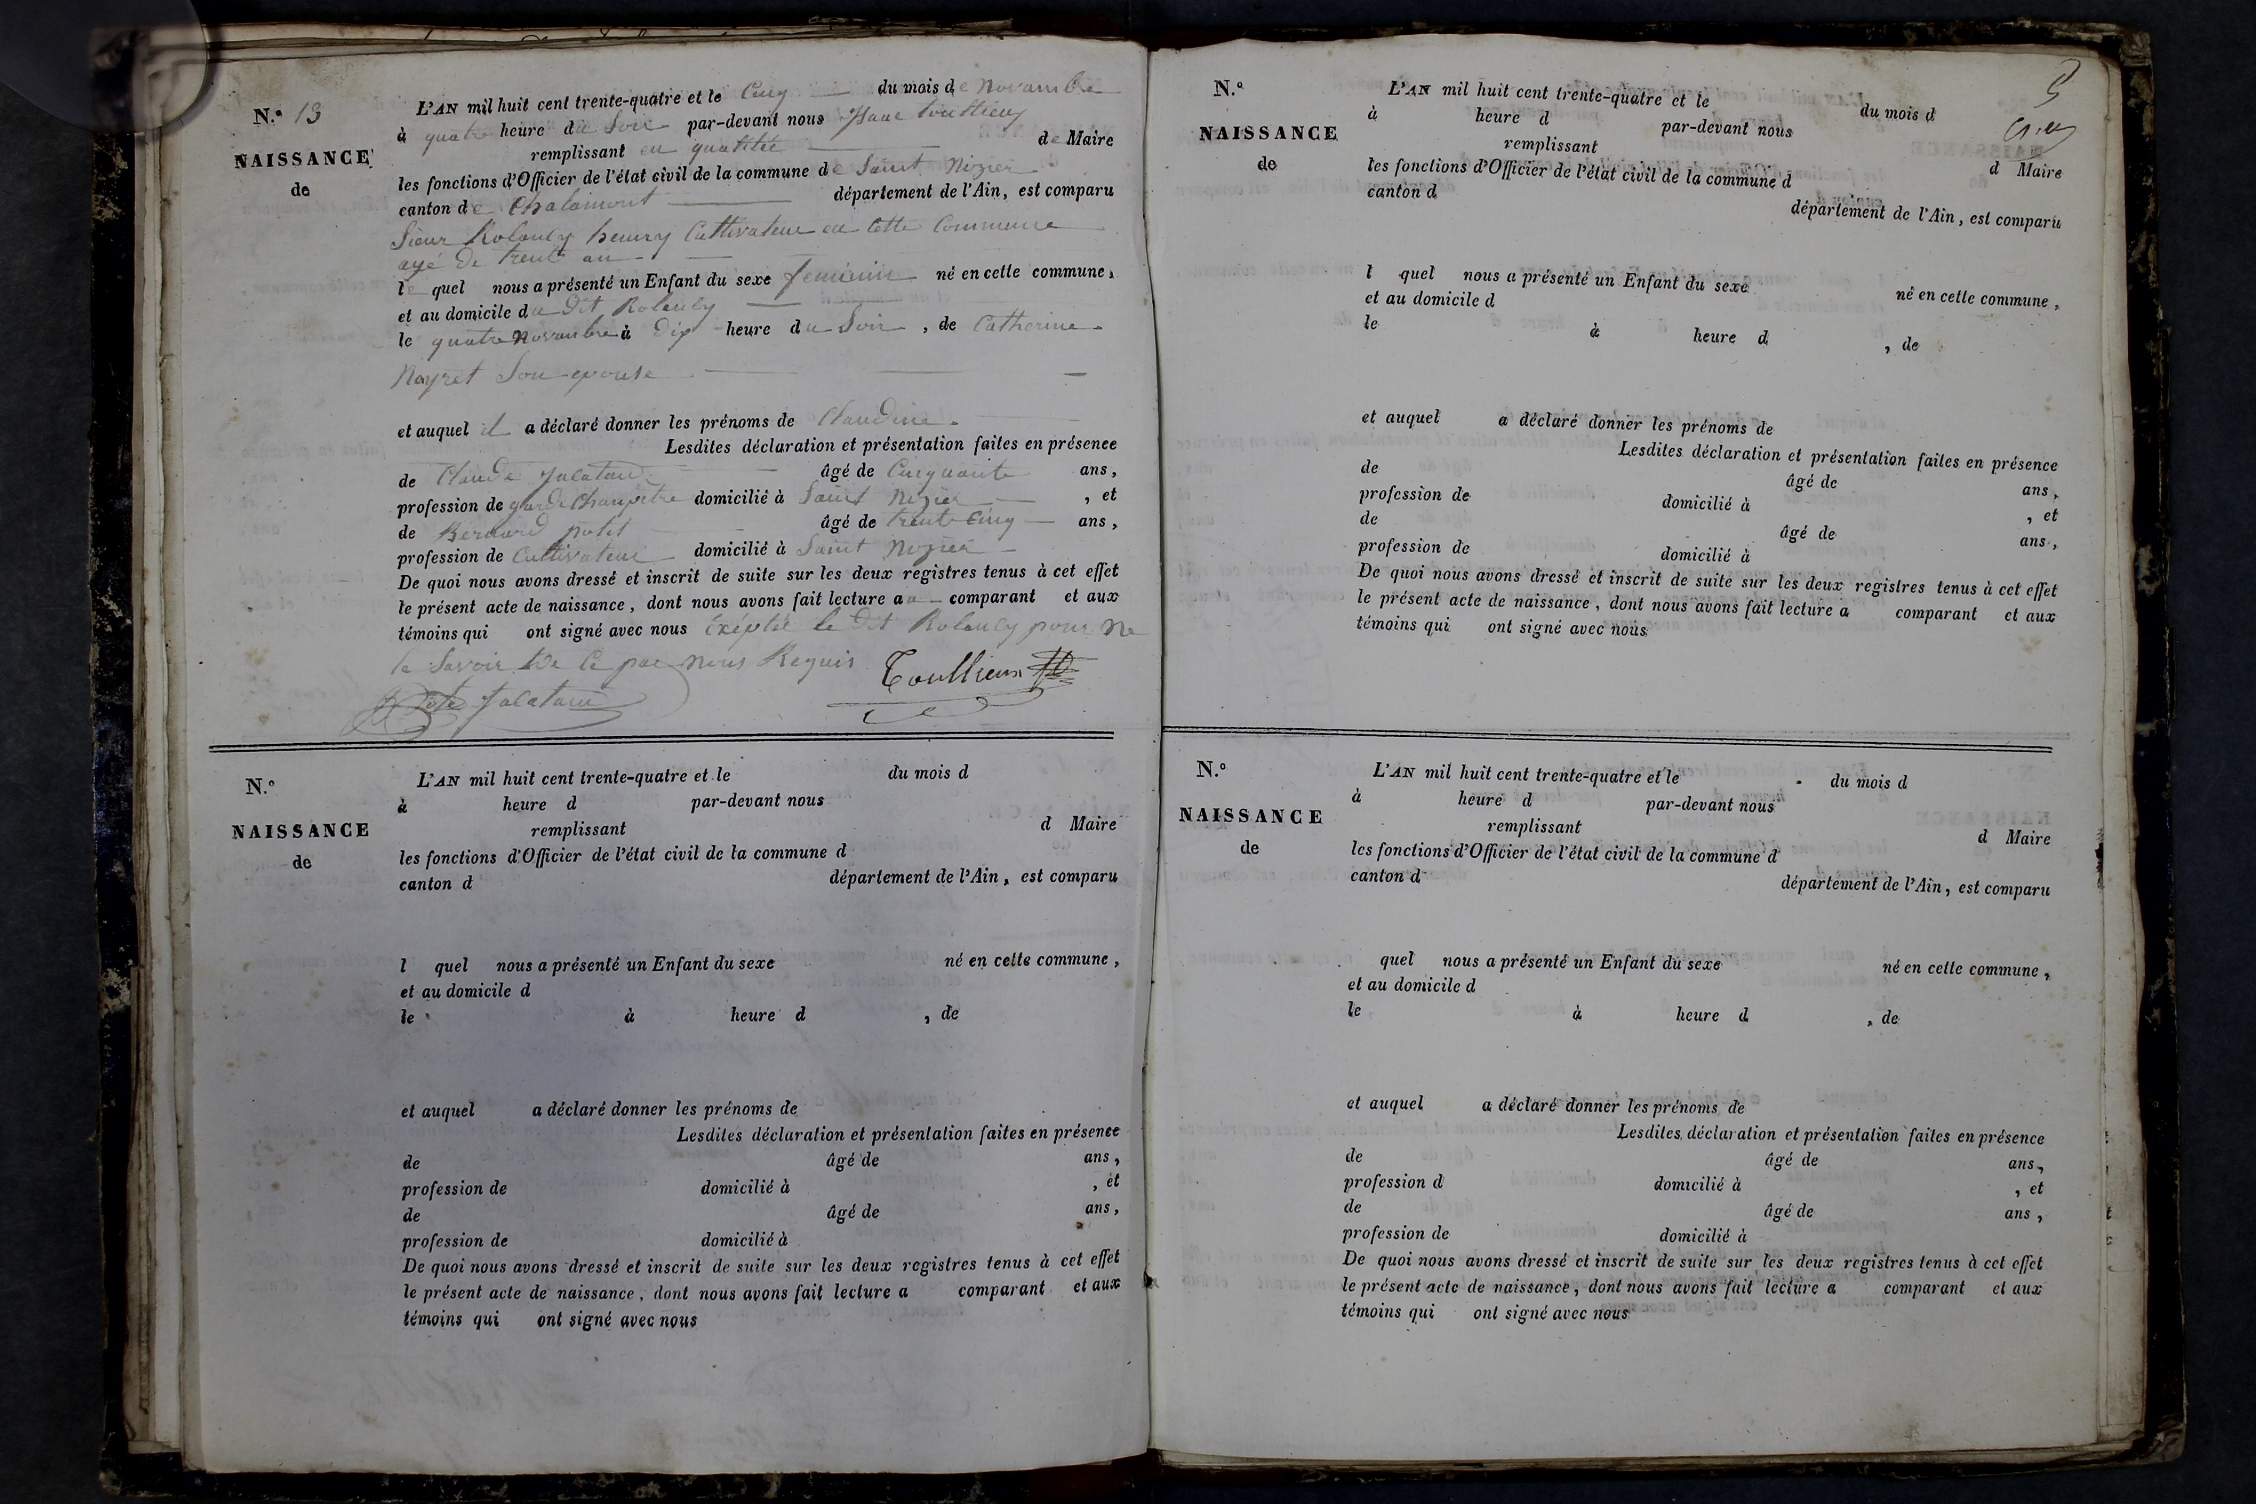 N.º 13
NAISSANCE
de
L'AN mil huit cent trente-quatre et le Cinq du mois de Novambre
à quatre heure du Soir par-devant nous
remplissant en qualitée de Maire
les fonctions d'Officier de l'état civil de la commune de Saint Nizier
canton de Chalamont département de l'Ain, est comparu
Sieur henry Cultivateur en Cette Commune
agé de trente an
le quel nous a présenté un Enfant du sexe feminin né en cette commune,
et au domicile du Dit
le quatre Novambre à Dix heure du Soir, de Catherine
Nayret Son epouse
et auquel il a déclaré donner les prénoms de Claudine.
Lesdites déclaration et présentation faites en présence
de Claude âgé de Cinquante ans,
profession de garde Champêtre domicilié à Saint Nizier, et
de Bernard âgé de trente Cinq ans,
profession de Cultivateur domicilié à Saint Nizier
De quoi nous avons dressé et inscrit de suite sur les deux registres tenus à cet effet
le présent acte de naissance, dont nous avons fait lecture au comparant et aux
témoins qui ont signé avec nous le Dit pour ne
le Savoir De Ce par nous Requis
Toullieux
N.º
NAISSANCE
de
L'AN mil huit cent trente-quatre et le du mois d
à heure d par-devant nous
remplissant d Maire
les fonctions d'Officier de l'état civil de la commune d
canton d département de l'Ain, est comparu
l quel nous a présenté un Enfant du sexe né en cette commune,
et au domicile d
le à heure d , de
et auquel a déclaré donner les prénoms de
Lesdites déclaration et présentation faites en présence
de âgé de ans,
profession de domicilié à , et
de âgé de ans,
profession de domicilié à
De quoi nous avons dressé et inscrit de suite sur les deux registres tenus à cet effet
le présent acte de naissance, dont nous avons fait lecture a comparant et aux
témoins qui ont signé avec nous
N.º
NAISSANCE
de
L'AN mil huit cent trente-quatre et le du mois d
à heure d par-devant nous
remplissant d Maire
les fonctions d'Officier de l'état civil de la commune d
canton d département de l'Ain, est comparu
l quel nous a présenté un Enfant du sexe né en cette commune,
et au domicile d
le à heure d , de
et auquel a déclaré donner les prénoms de
Lesdites déclaration et présentation faites en présence
de âgé de ans,
profession de domicilié à , et
de âgé de ans,
profession de domicilié à
De quoi nous avons dressé et inscrit de suite sur les deux registres tenus à cet effet
le présent acte de naissance, dont nous avons fait lecture a comparant et aux
témoins qui ont signé avec nous
N.º
NAISSANCE
de
L'AN mil huit cent trente-quatre et le du mois d
à heure d par-devant nous
remplissant d Maire
les fonctions d'Officier de l'état civil de la commune d
canton d département de l'Ain, est comparu
quel nous a présenté un Enfant du sexe né en cette commune,
et au domicile d
le à heure d , de
et auquel a déclaré donner les prénoms de
Lesdites déclaration et présentation faites en présence
de âgé de ans,
profession d domicilié à , et
de âgé de ans,
profession de domicilié à
De quoi nous avons dressé et inscrit de suite sur les deux registres tenus à cet effet
le présent acte de naissance, dont nous avons fait lecture a comparant et aux
témoins qui ont signé avec nous